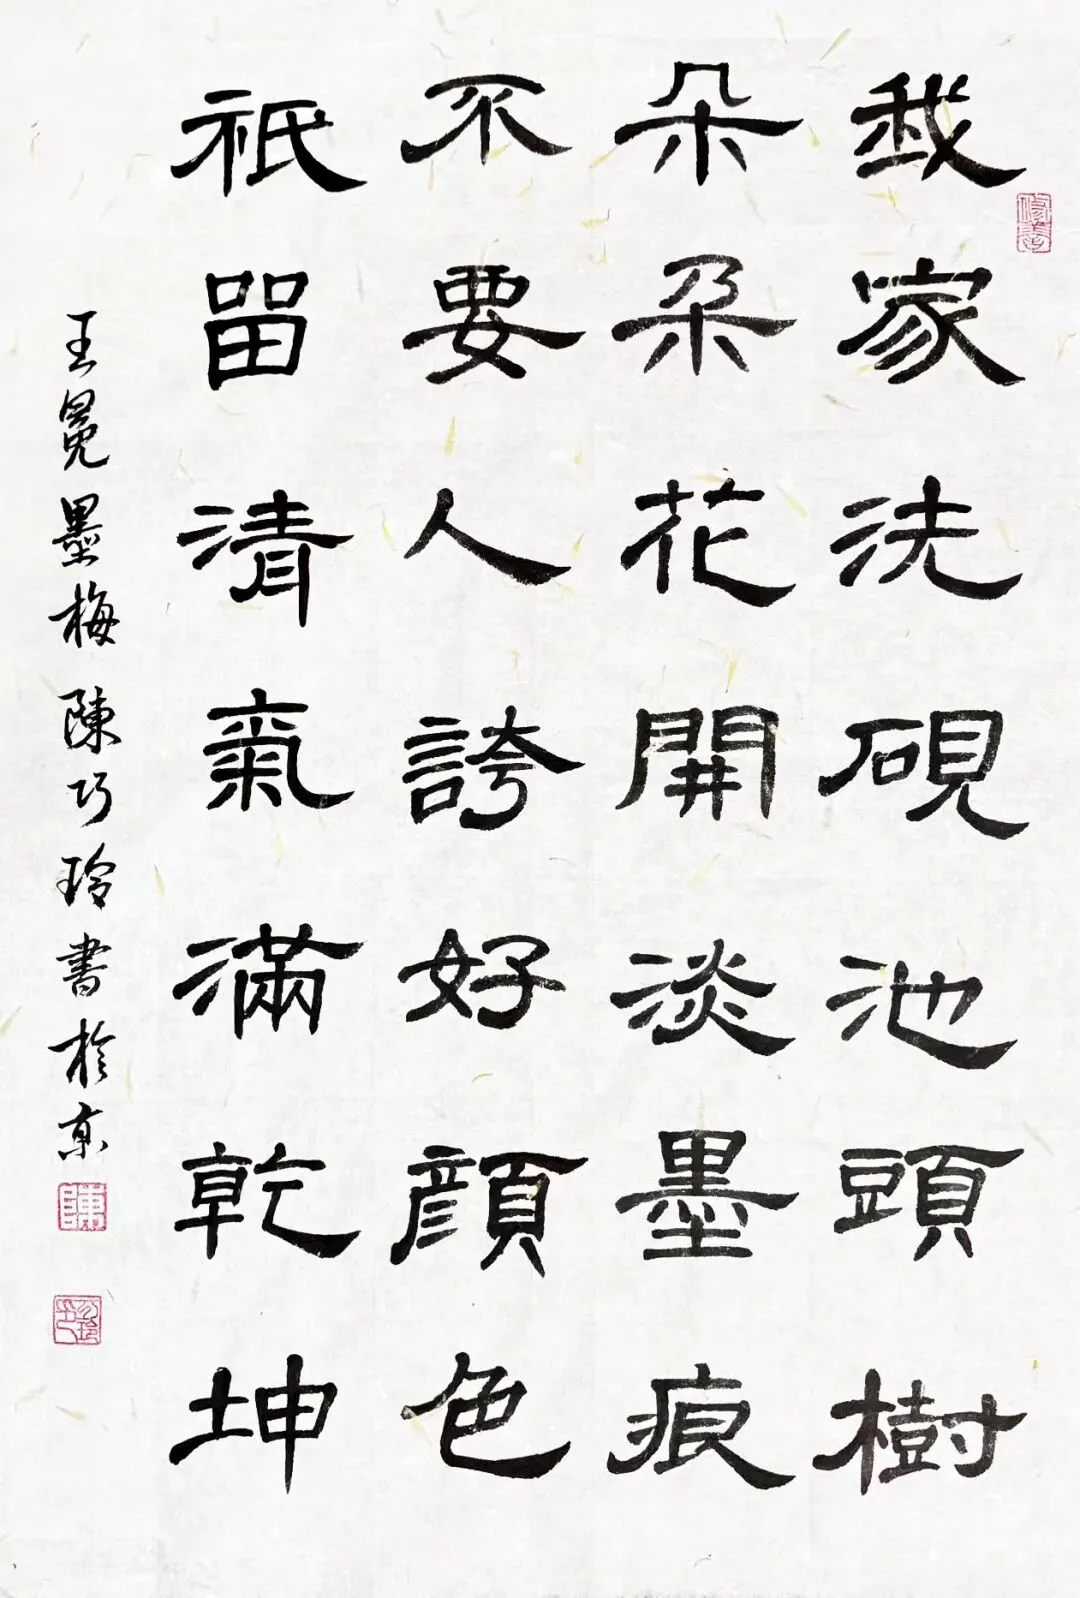 我家洗硯池頭樹
朵朵花開淡墨痕
不要人誇好顏色
祇留清氣滿乾坤
王冕墨梅 陳巧玲書於京
陳